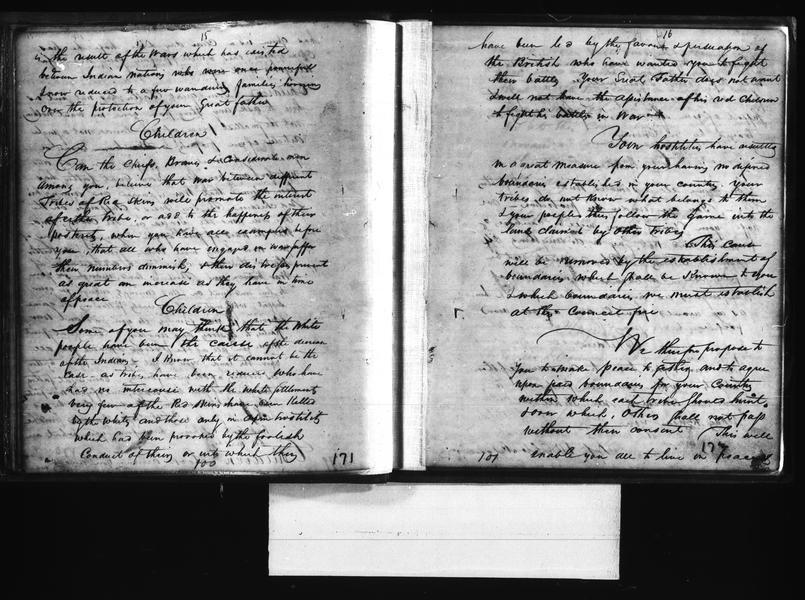 15
is the result of the Wars which has existed
between Indian Nations who were once powerful
& now reduced to a few wandering families
over the protection of your Great father
Children
Can the Chiefs, Braves, & Considerate men
among you, believe that war between different
Tribes of Red Skins will promote the interest
of either tribe, or add to the happiness of their
posterity, when you have all examples before
you, that all who have engaged in war suffer
their numbers diminish; & their distresses present
as great an increase as they have in time
of peace
Children
Some of you may think that the White
people have been the cause of the decrease
of the Indians - I know that it cannot be the
case as tribes have been reduced who have
had no intercourse with the White settlements
very few of the Red Skins have been Killed
by the Whites and those only in open hostility
which had been provoked by the foolish
Conduct of theirs or into which they
100
171
16
have been led by the favour & persuasion of
the British who have wanted you to fight
their battles Your Great Father does not want
& will not have the assistance of his red Children
to fight his battles in War
Your hostilities have resulted
in a great measure from your having no defined
boundaries established in your country Your
tribes do not know what belongs to them
& your people thus follow the game into the
lands claimed by other tribes
This cause
will be removed by the establishment of
boundaries which shall be Known to you
& which boundaries we must establish
at this Council fire
We therefore propose to
you to make peace together and to agree
upon fixed boundaries for your Country
within which each tribe should hunt
& over which others shall not pass
without their consent This will
enable you all to live in peace &
101
172